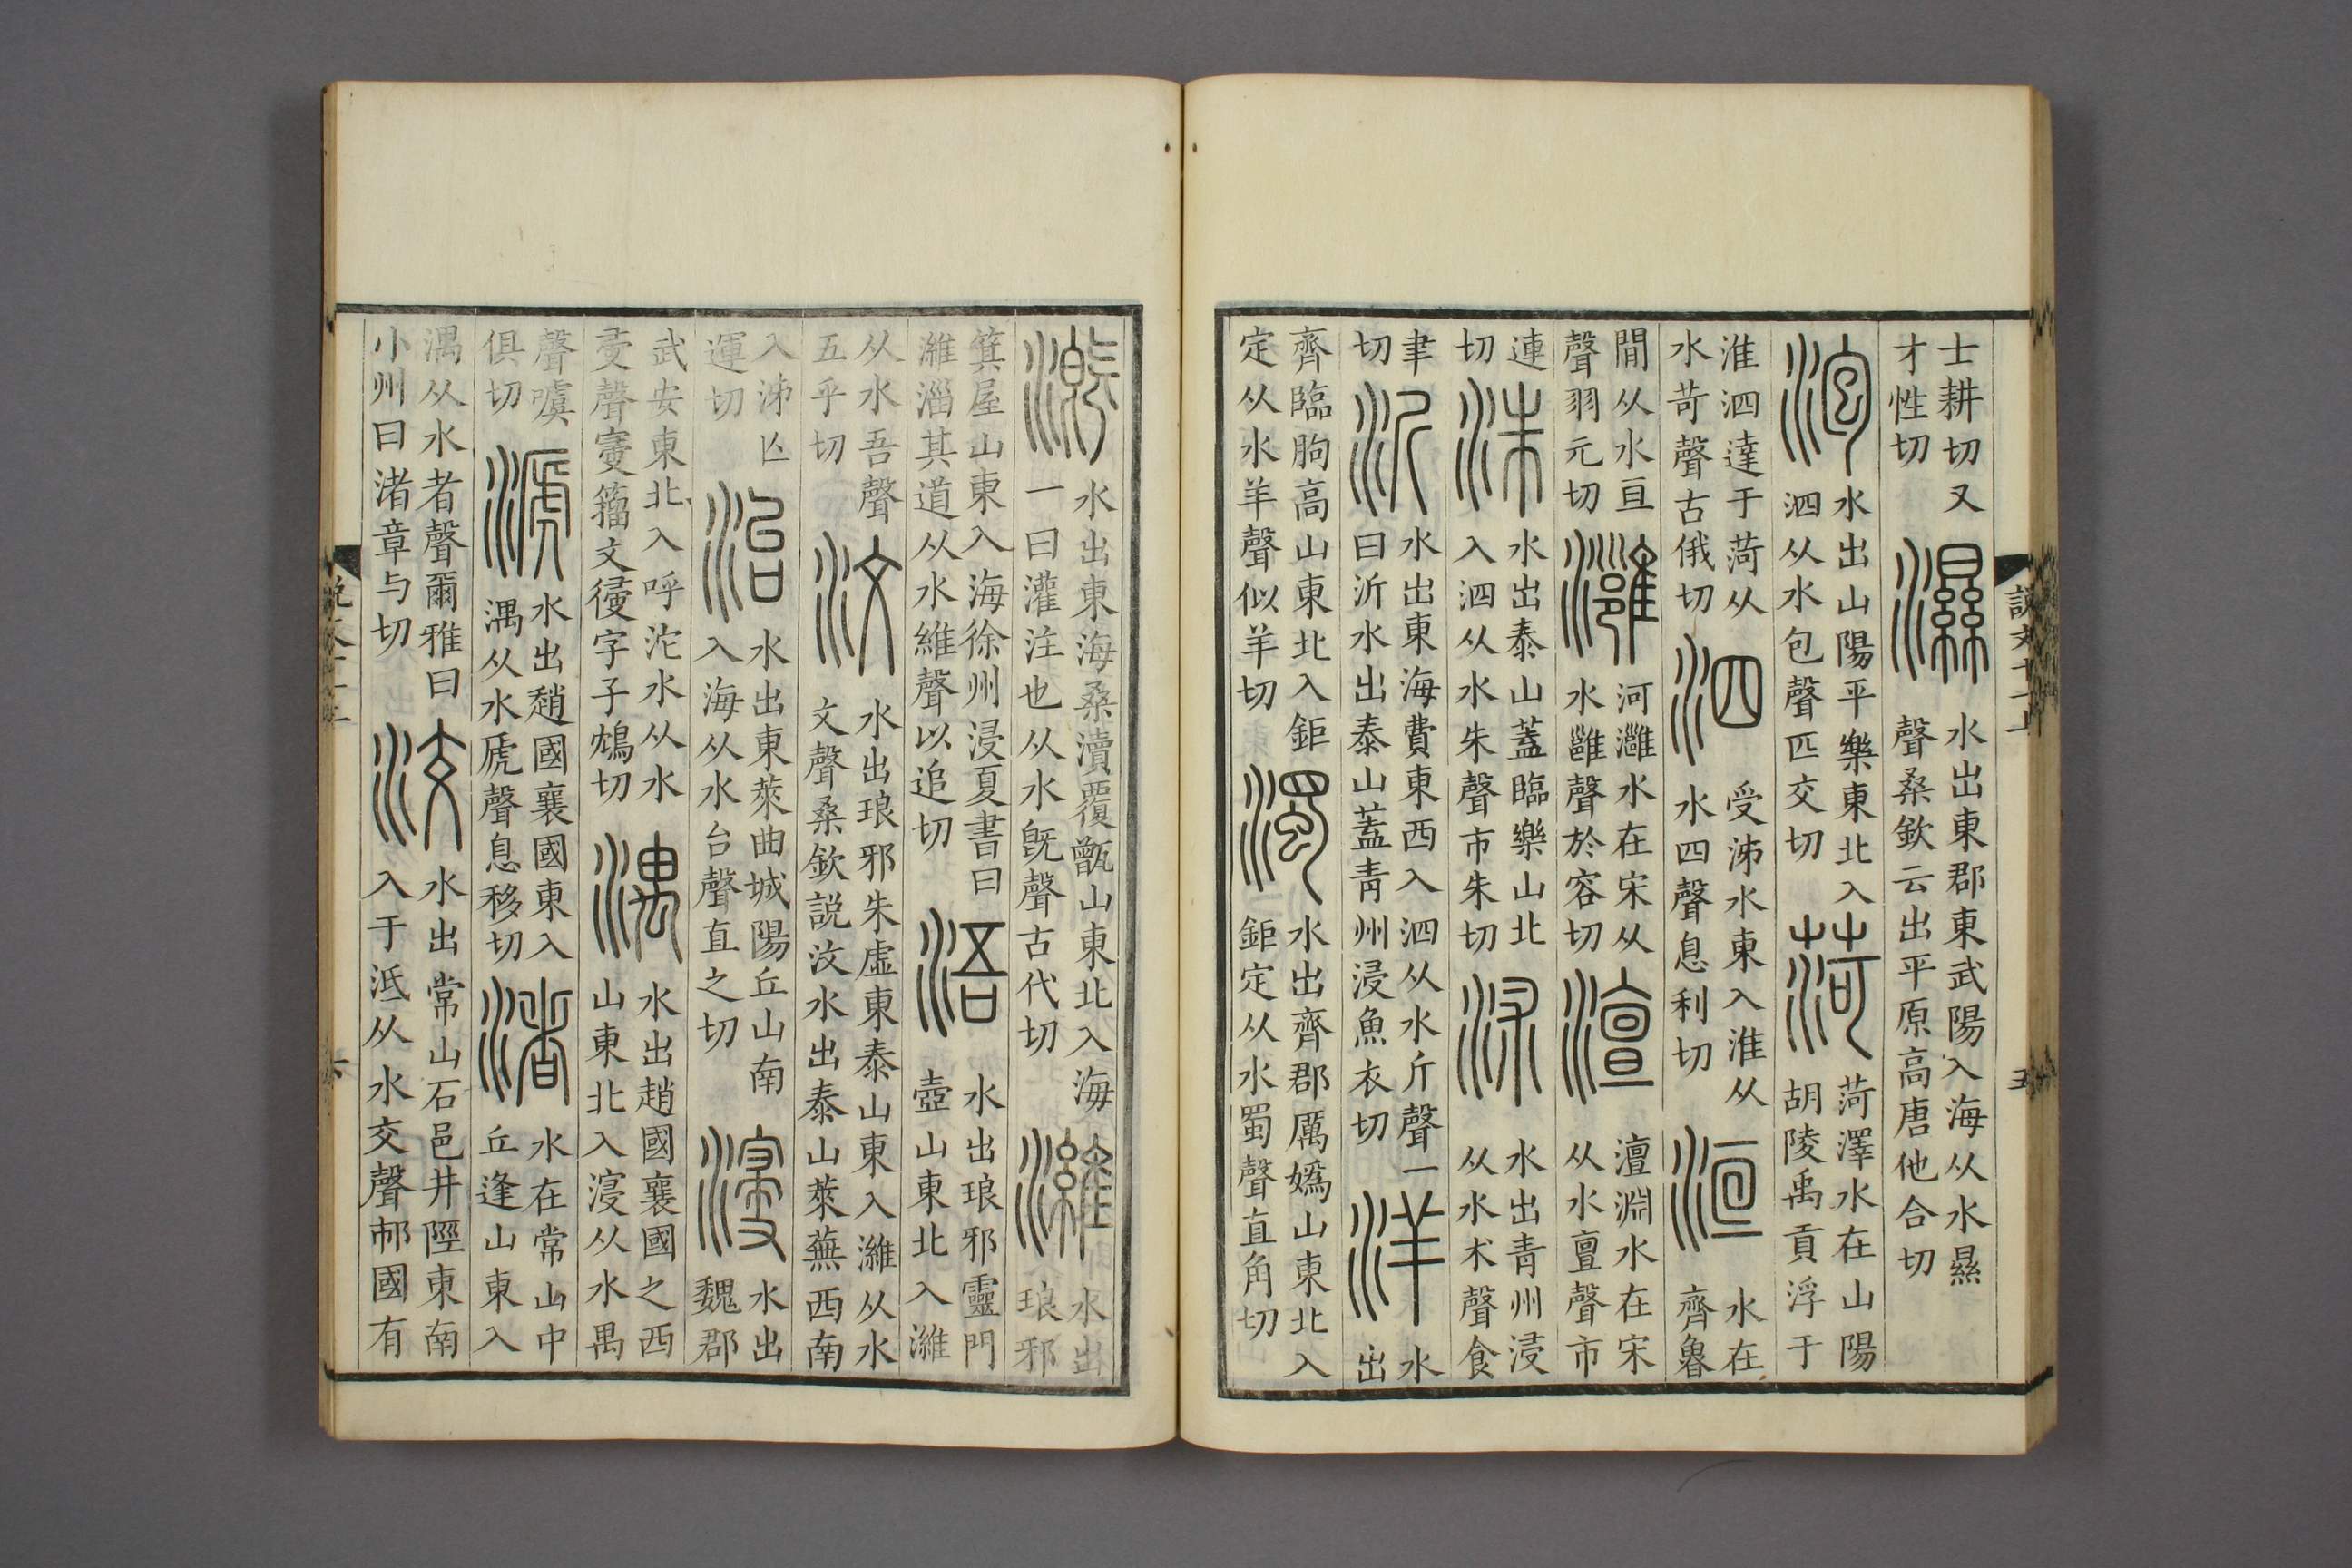 説文十一上
五
士耕切又
才性切
濕
水出東郡東武陽入海从水㬎
聲桑欽云出平原高唐他合切
泡
水出山陽平樂東北入
泗从水包聲匹交切
菏
菏澤水在山陽
胡陵禹貢浮于
淮泗達于菏从
水苛聲古俄切
泗
受泲水東入淮从
水四聲息利切
洹
水在
齊魯
閒从水亘
聲羽元切
灉
河灉水在宋从
水雝聲於容切
澶
澶淵水在宋
从水亶聲市
連
切
洙
水出泰山蓋臨樂山北
入泗从水朱聲市朱切
沭
水出青州浸
从水术聲食
聿
切
沂
水出東海費東西入泗从水斤聲一
曰沂水出泰山蓋青州浸魚衣切
洋
水
出
齊臨朐高山東北入鉅
定从水羊聲似羊切
濁
水出齊郡厲嬀山東北入
鉅定从水蜀聲直角切
溉
水出東海桑瀆覆甑山東北入海
一曰灌注也从水旣聲古代切
濰
水出
琅邪
箕屋山東入海徐州浸夏書曰
濰淄其道从水維聲以追切
浯
水出琅邪靈門
壺山東北入濰
从水吾聲
五乎切
汶
水出琅邪朱虛東泰山東入濰从水
文聲桑欽説汶水出泰山萊蕪西南
入泲亾
運切
治
水出東萊曲城陽丘山南
入海从水台聲直之切
寖
水出
魏郡
武安東北入呼沱水从水
聲籒文字子鴆切
湡
水出趙國襄國之西
山東北入寖从水禺
聲噳
俱切
㴲
水出趙國襄國東入
湡从水虒聲息移切
渚
水在常山中
丘逢山東入
湡从水者聲爾雅曰
小州曰渚章与切
洨
水出常山石邑井陘東南
入于泜从水交聲國有
六